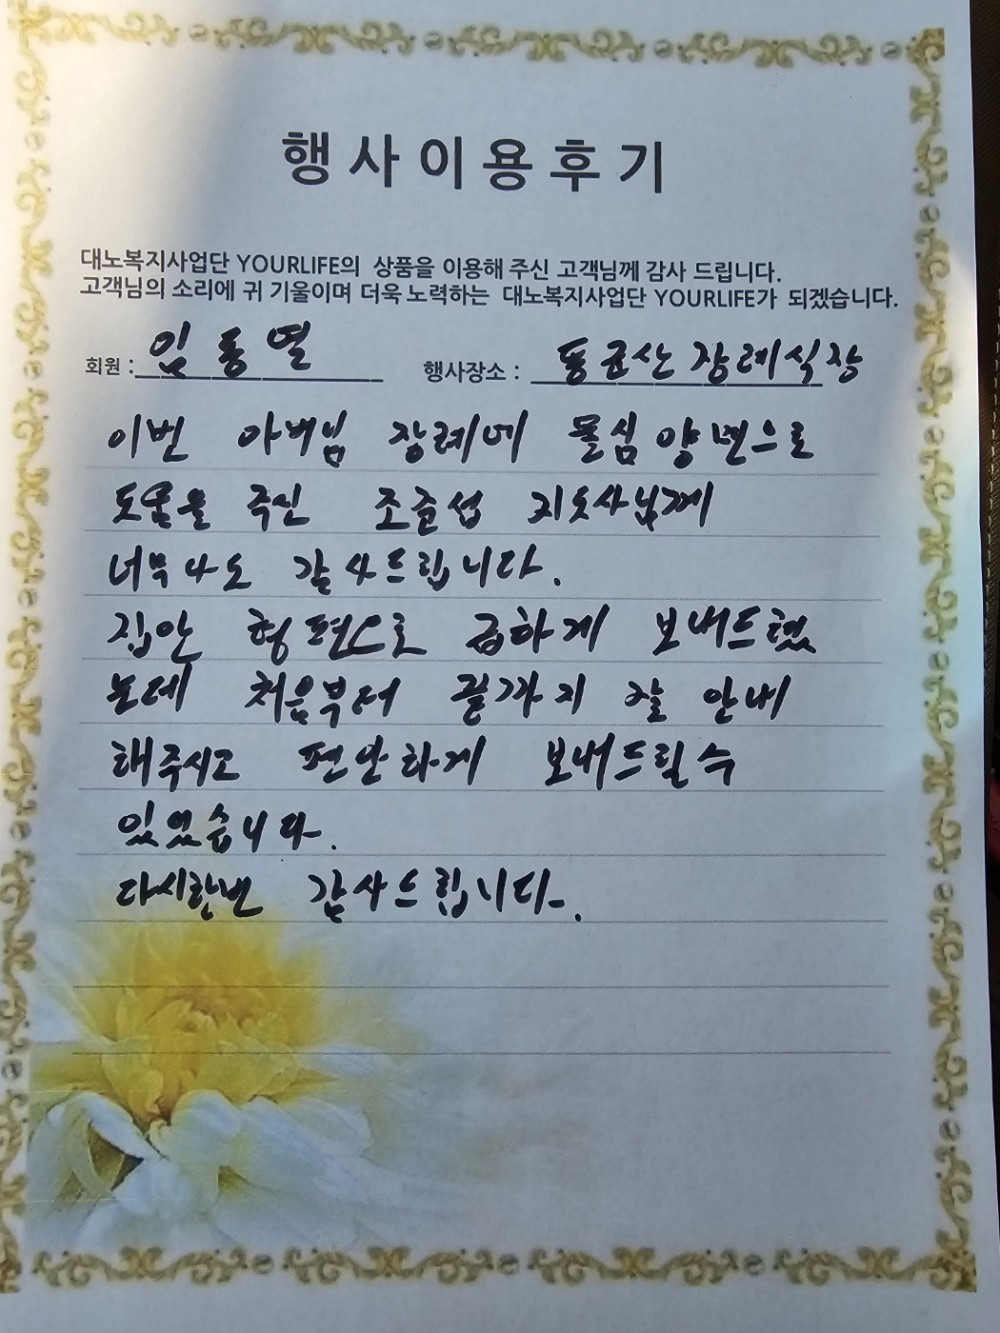 행사이용후기
대노복지사업단 YOURLIFE의 상품을 이용해 주신 고객님께 감사 드립니다.
고객님의 소리에 귀 기울이며 더욱 노력하는 대노복지사업단 YOURLIFE가 되겠습니다.
회원 : 임동열 행사장소 : 용균산 장례식장
이번 아버님 장례에 물심양면으로
도움을 주신 조준섭 지도사님께
너무나도 감사드립니다.
집안 형편으로 급하게 보내드렸
는데 처음부터 끝까지 잘 안내
해주시고 편안하게 보내드릴수
있었습니다.
다시한번 감사드립니다.